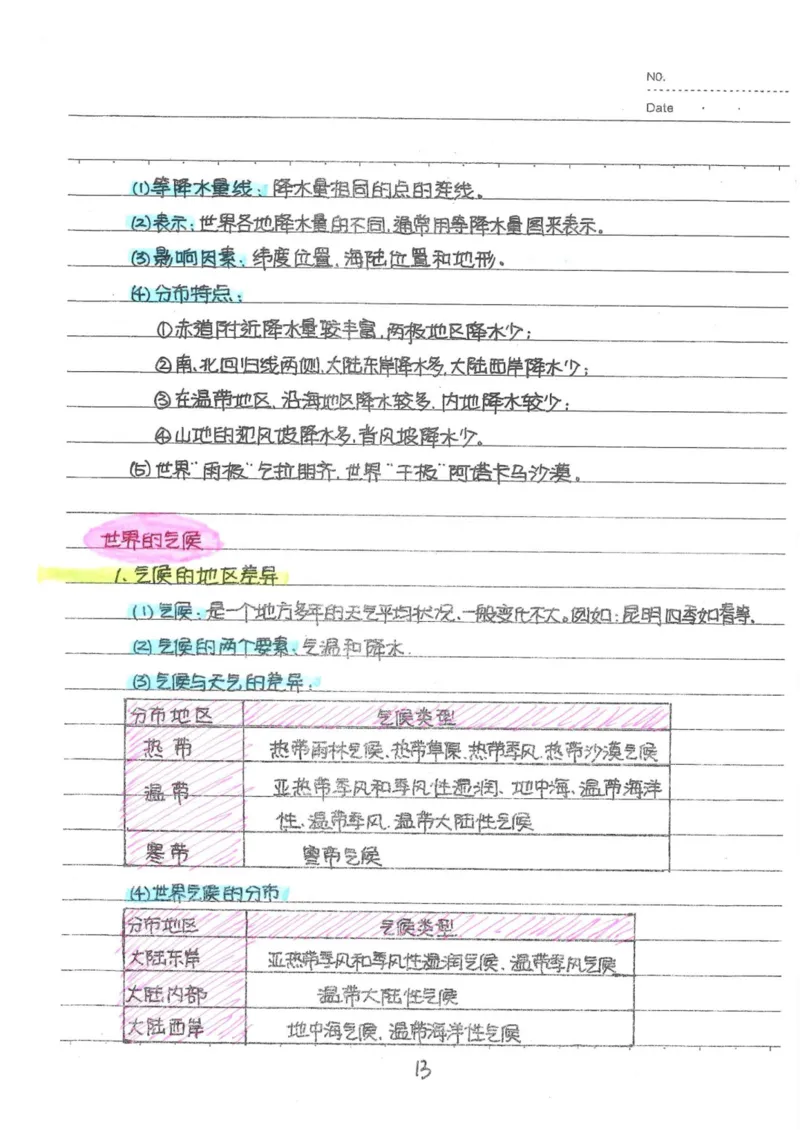 NO.
Date
(1)等降水量线:降水量相同的点的连线。
(2)表示:世界各地降水量的不同,通常用等降水量图来表示。
(3)影响因素:纬度位置,海陆位置和地形。
(4)分布特点:
①赤道附近降水量较丰富,两极地区降水少;
②南、北回归线两侧,大陆东岸降水多,大陆西岸降水少;
③在温带地区,沿海地区降水较多,内地降水较少;
④山地的迎风坡降水多,背风坡降水少。
(5)世界“雨极”乞拉朋齐,世界“干极”阿塔卡马沙漠。
世界的气候
1、气候的地区差异
(1)气候:是一个地方多年的天气平均状况、一般变化不大。例如:昆明四季如春等.
(2)气候的两个要素:气温和降水.
(3)气候与天气的差异:
分布地区 气候类型
热带 热带雨林气候、热带草原、热带季风、热带沙漠气候
温带 亚热带季风和季风性湿润、地中海、温带海洋
性、温带季风、温带大陆性气候
寒带 寒带气候
(4)世界气候的分布
分布地区 气候类型
大陆东岸 亚热带季风和季风性湿润气候、温带季风气候
大陆内部 温带大陆性气候
大陆西岸 地中海气候,温带海洋性气候
13